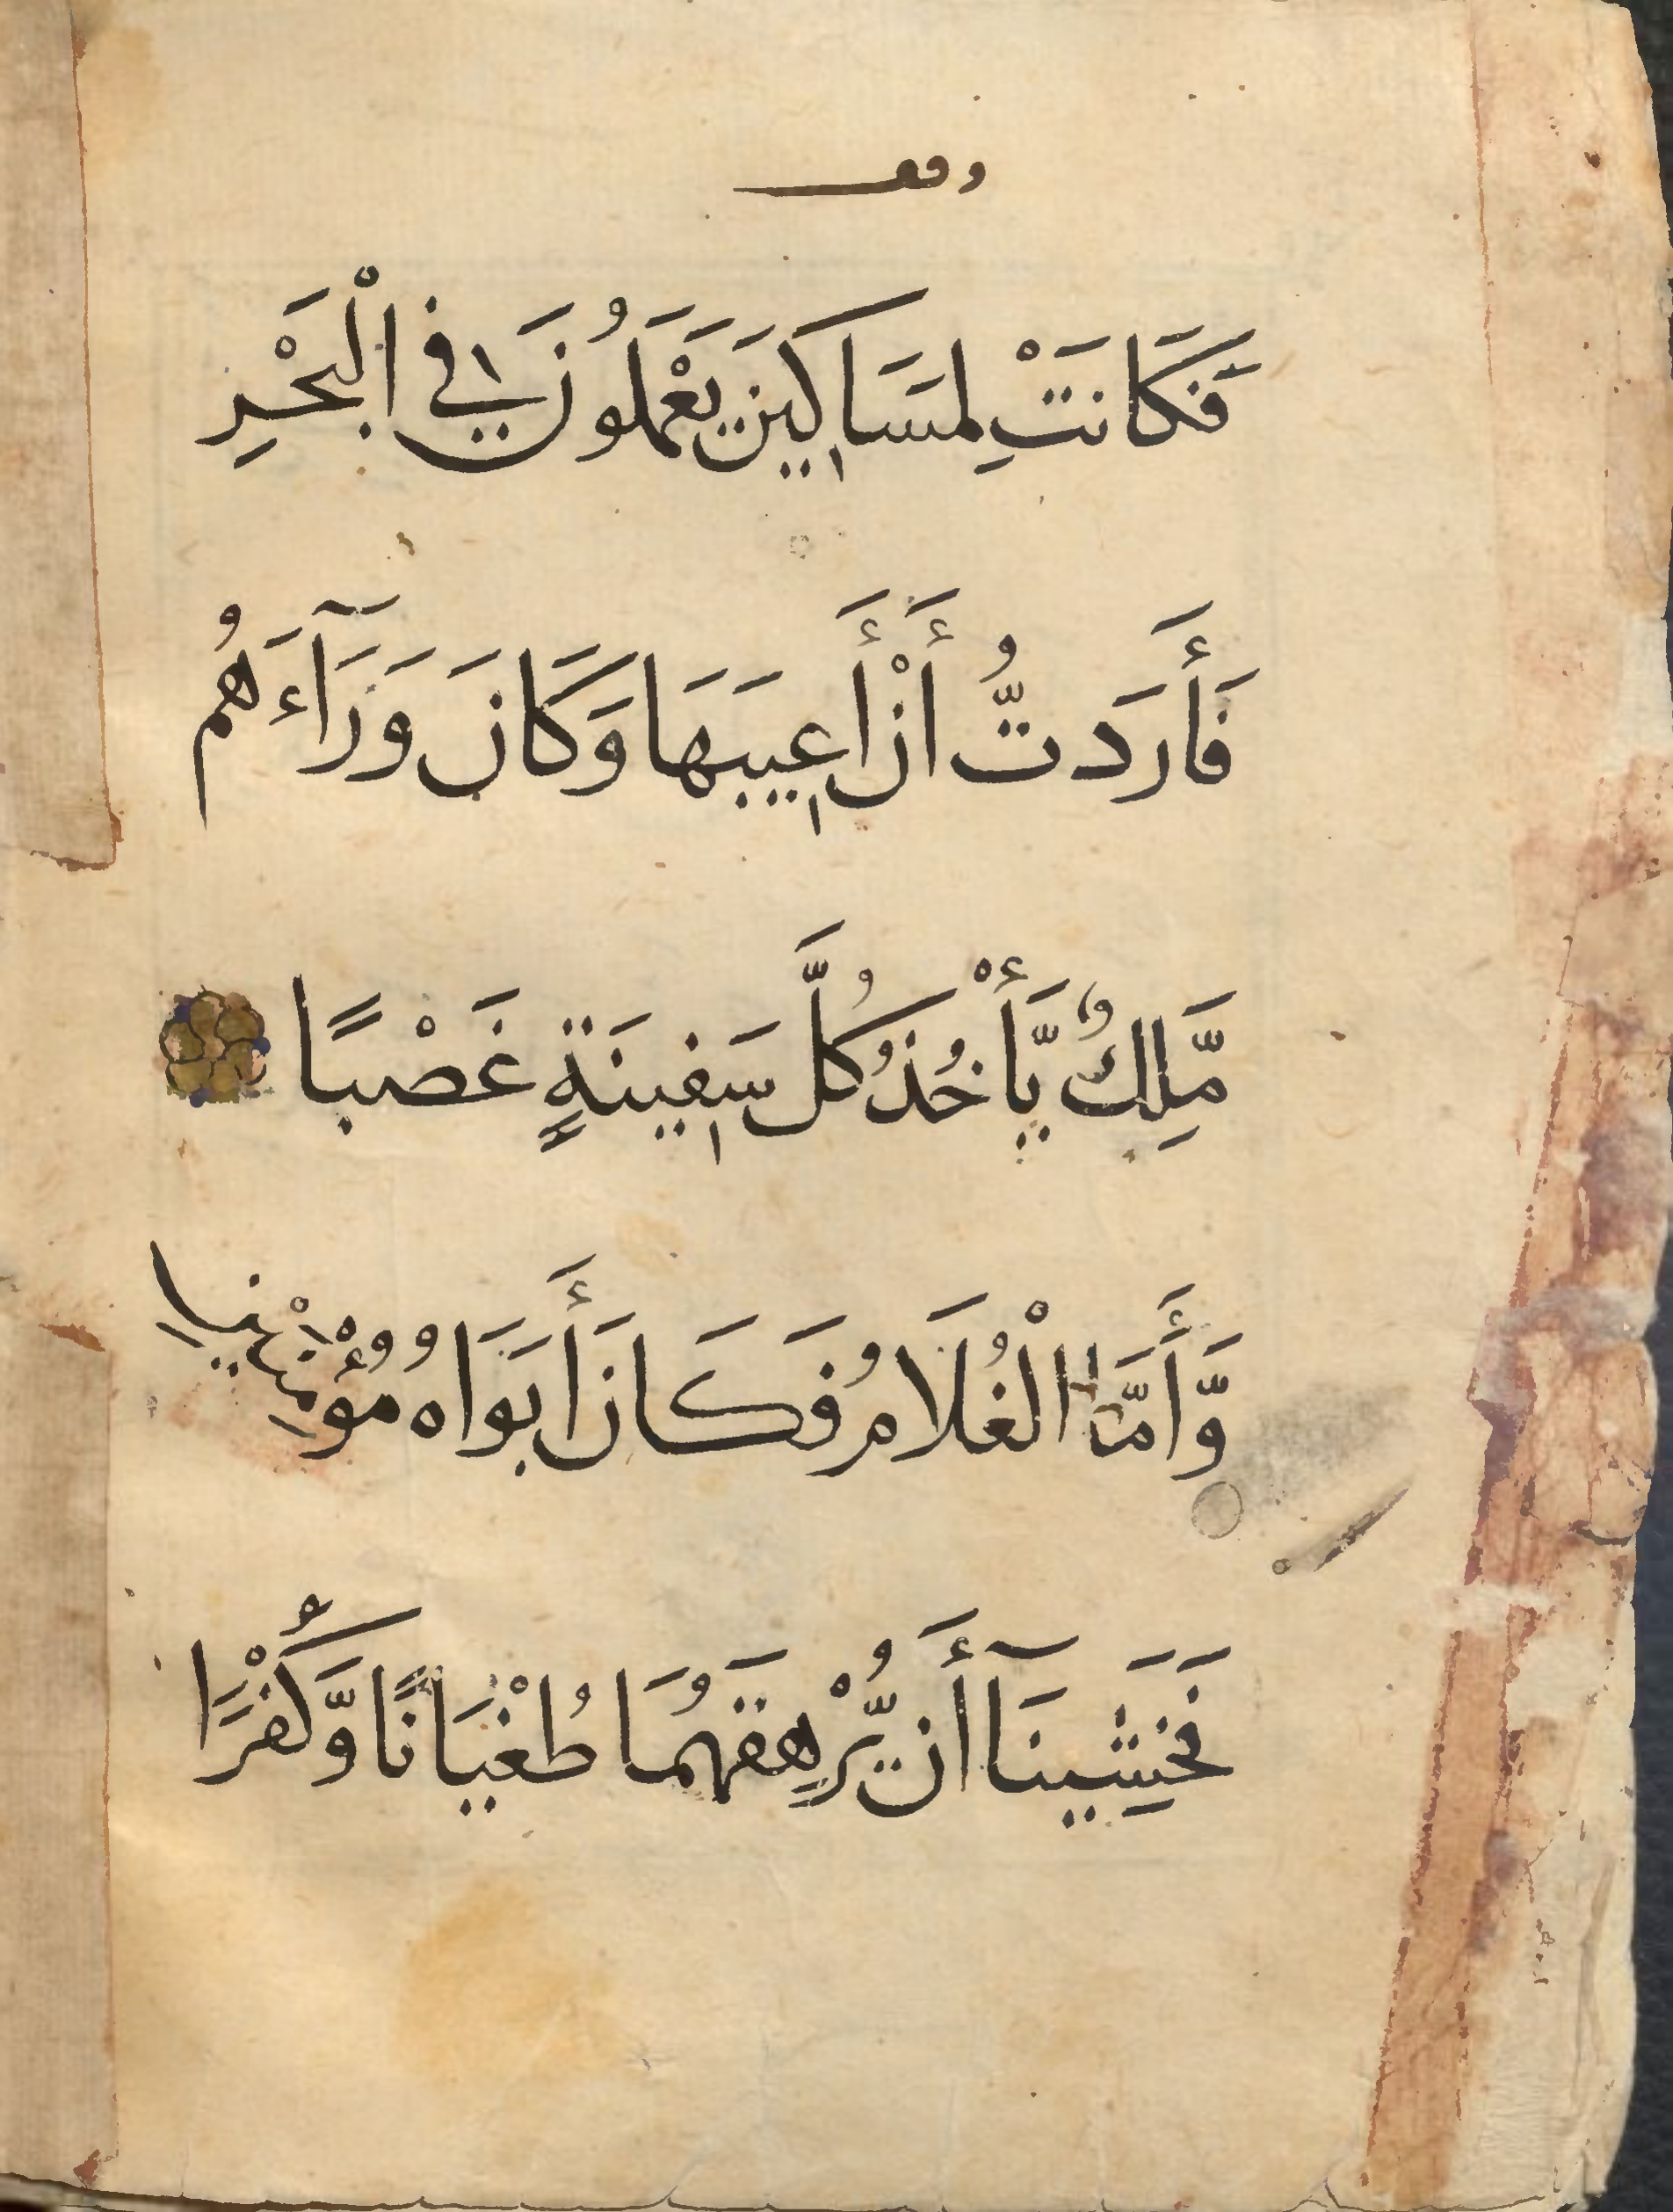 وقف
فَكَانَتْ لِمَسَاكِينَ يَعْمَلُونَ فِي الْبَحْرِ
فَأَرَدتُّ أَنْ أَعِيبَهَا وَكَانَ وَرَآءَهُم
مَّلِكٌ يَّأْخُذُ كُلَّ سَفِينَةٍ غَصْبًا
وَّأَمَّا الْغُلَامُ فَكَانَ أَبَوَاهُ مُؤْمِنَيْنِ
فَخَشِينَآ أَن يُّرْهِقَهُمَا طُغْيَانًا وَّكُفْرًا